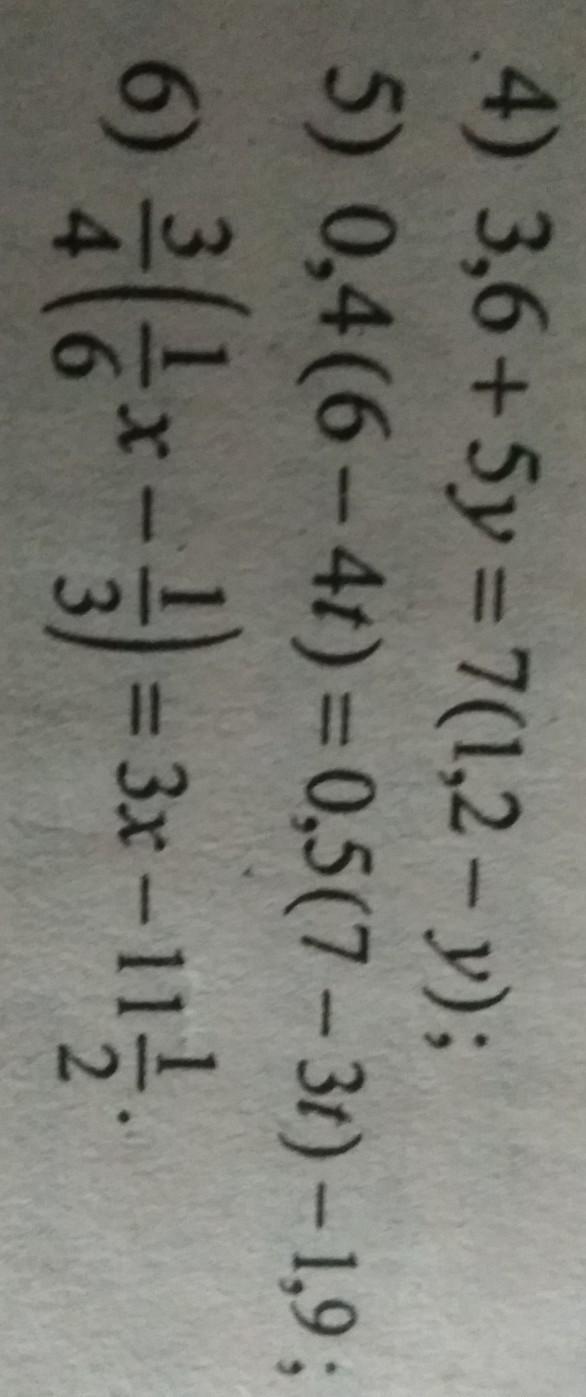 4) 3,6 + 5y = 7(1,2 − y);
5) 0,4(6 − 4t) = 0,5(7 − 3t) − 1,9;
6) \frac{3}{4}(\frac{1}{6}x − \frac{1}{3}) = 3x − 11\frac{1}{2}.